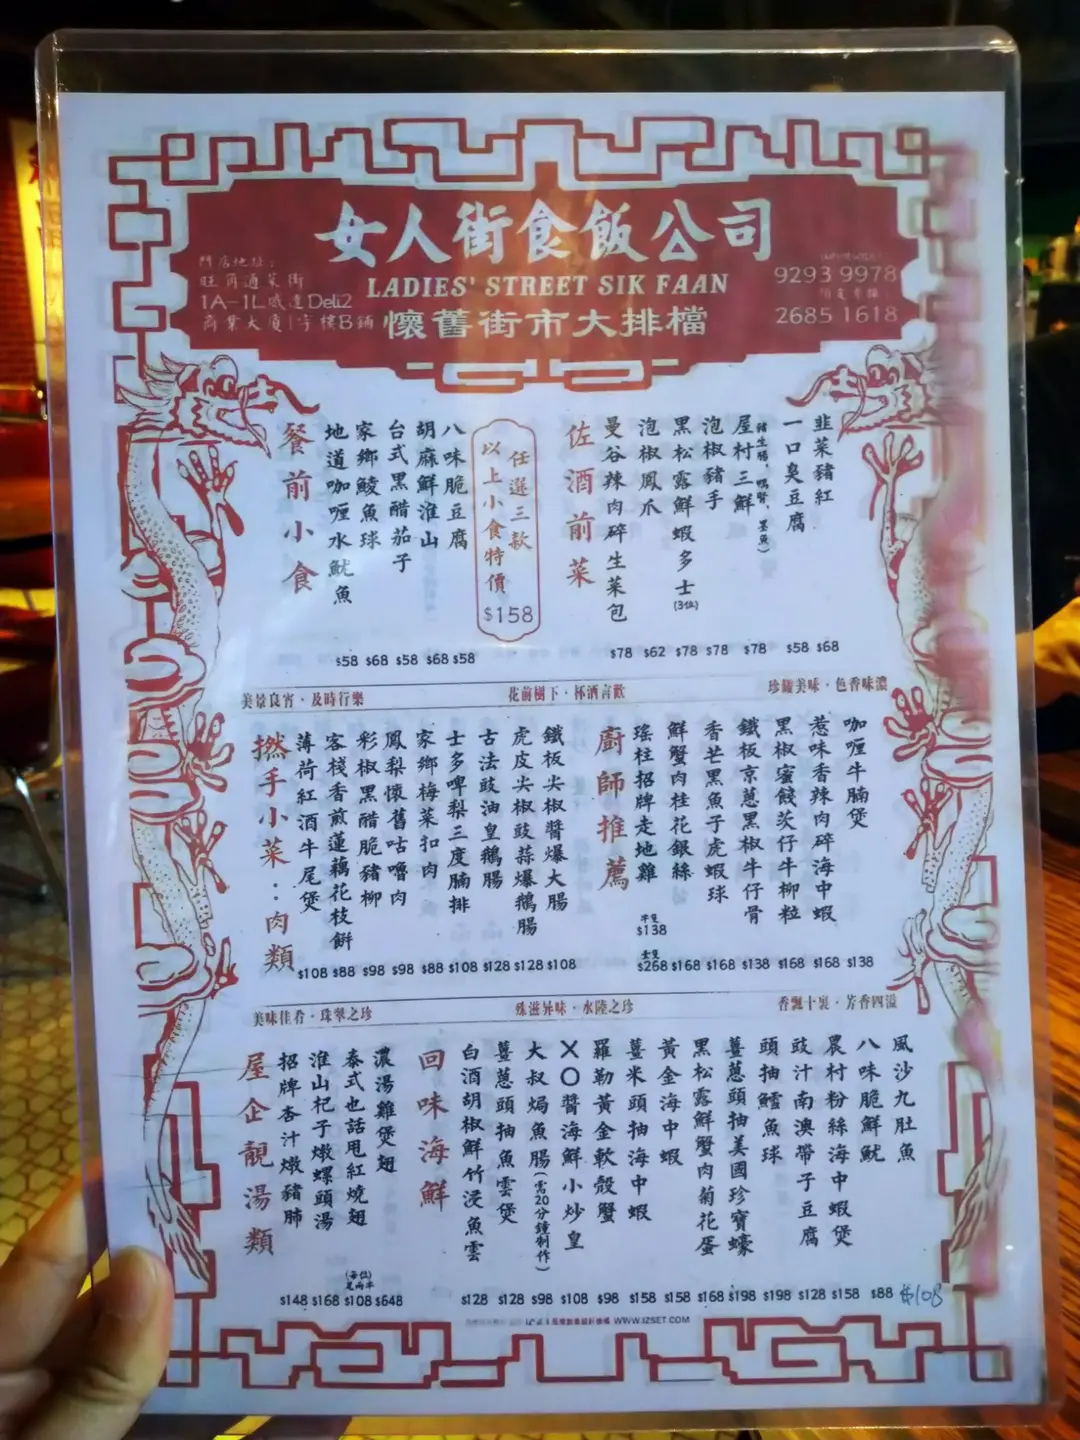 女人街食飯公司
LADIES' STREET SIK FAAN
懷舊街市大排檔
門店地址:
旺角通菜街
1A-1L威達Deli2
商業大廈1字樓B鋪
9293 9978
2685 1618
餐前小食
地道咖喱水魷魚 $58
家鄉鯪魚球 $68
台式黑醋茄子 $58
胡麻鮮淮山 $68
八味脆豆腐 $58
任選三款
以上小食特價
$158
佐酒前菜
曼谷辣肉碎生菜包 $78
泡椒鳳爪 $62
黑松露鮮蝦多士(3位) $78
泡椒豬手 $78
屋村三鮮 $78
一口臭豆腐 $58
韭菜豬紅 $68
美景良宵·及時行樂
花前樹下·杯酒言歡
珍饈美味·色香味濃
撚手小菜:肉類
薄荷紅酒牛尾煲 $108
客棧香煎蓮藕花枝餅 $88
彩椒黑醋脆豬柳 $98
鳳梨懷舊咕嚕肉 $98
家鄉梅菜扣肉 $88
士多啤梨三度腩排 $108
古法豉油皇鵝腸 $128
虎皮尖椒豉蒜爆鵝腸 $128
鐵板尖椒醬爆大腸 $108
廚師推薦
瑤柱招牌走地雞 半隻 $138 全隻 $268
鮮蟹肉桂花銀絲 $168
香芒黑魚子虎蝦球 $168
鐵板京蔥黑椒牛仔骨 $138
黑椒蜜餞茨仔牛柳粒 $168
惹味香辣肉碎海中蝦 $168
咖喱牛腩煲 $138
美味佳肴·珠翠之珍
殊滋异味·水陸之珍
香飄十裏·芳香四溢
屋企靚湯類
招牌杏汁燉豬肺 $148
淮山杞子燉螺頭湯 $168
泰式也話甩紅燒翅 (每位) $108
濃湯雞煲翅 $648
回味海鮮
白酒胡椒鮮竹浸魚雲 $128
薑蔥頭抽魚雲煲 $128
大叔焗魚腸(需20分鐘制作) $98
XO醬海鮮小炒皇 $108
羅勒黃金軟殼蟹 $98
薑米頭抽海中蝦 $158
黃金海中蝦 $158
黑松露鮮蟹肉菊花蛋 $168
薑蔥頭抽美國珍寶蠔 $198
頭抽鱈魚球 $198
豉汁南澳帶子豆腐 $128
農村粉絲海中蝦煲 $158
八味脆鮮魷 $88
風沙九肚魚 $108
WWW.IZSET.COM